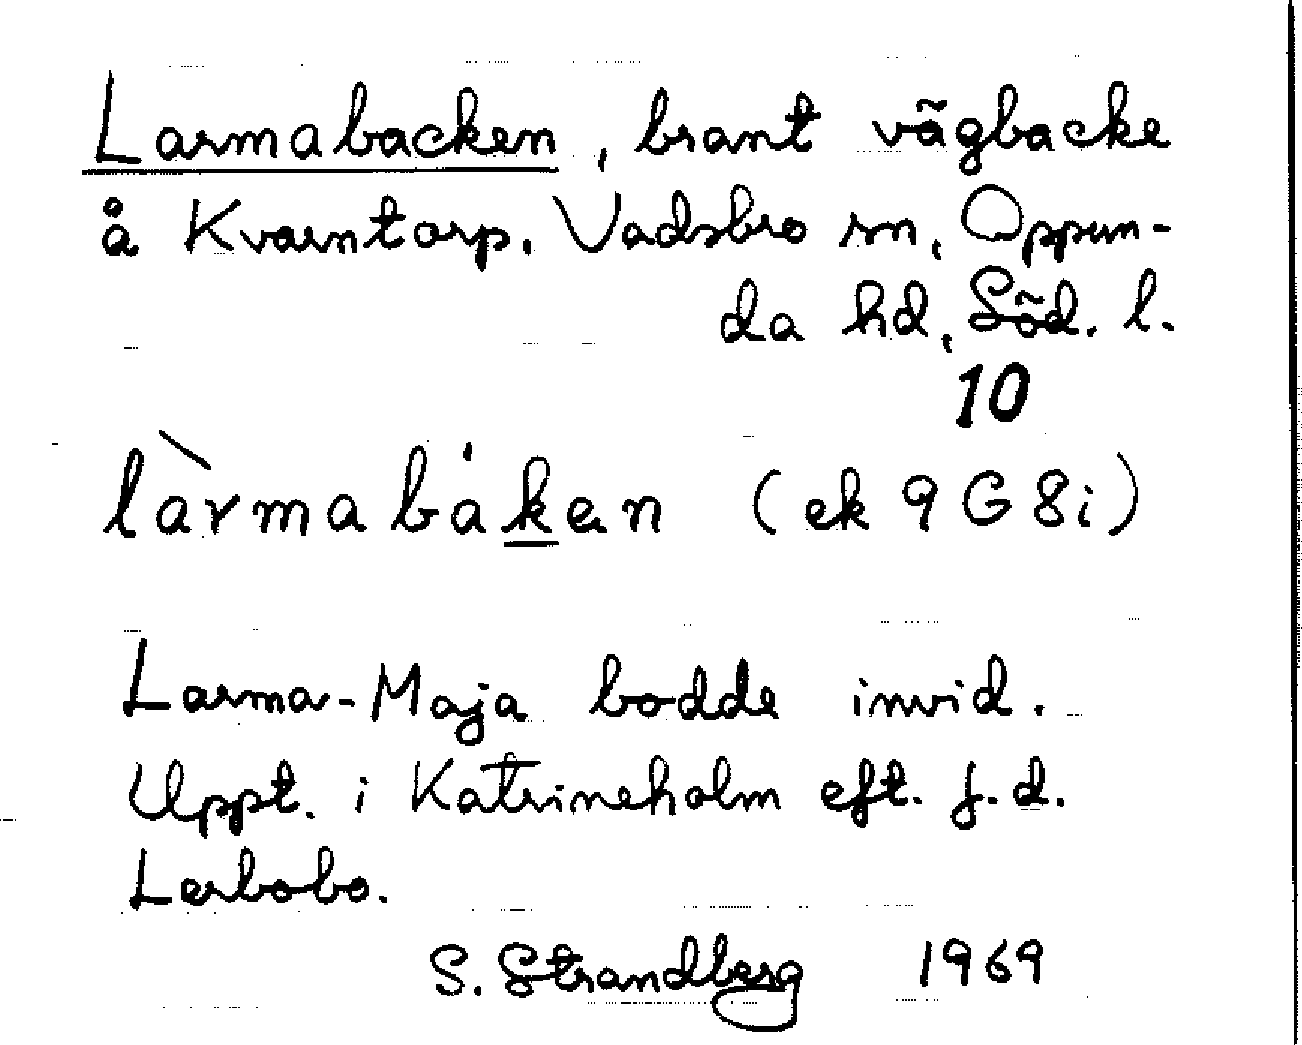 Larmabacken, brant vägbacke
å Kvarntorp. Vadsbro sn, Oppun-
da hd, Söd. l.
10
làrmabák̲en (ek 9 G 8i)
Larma-Maja bodde invid.
Uppt. i Katrineholm eft. f.d.
Lerbobo.
S. Strandberg 1969